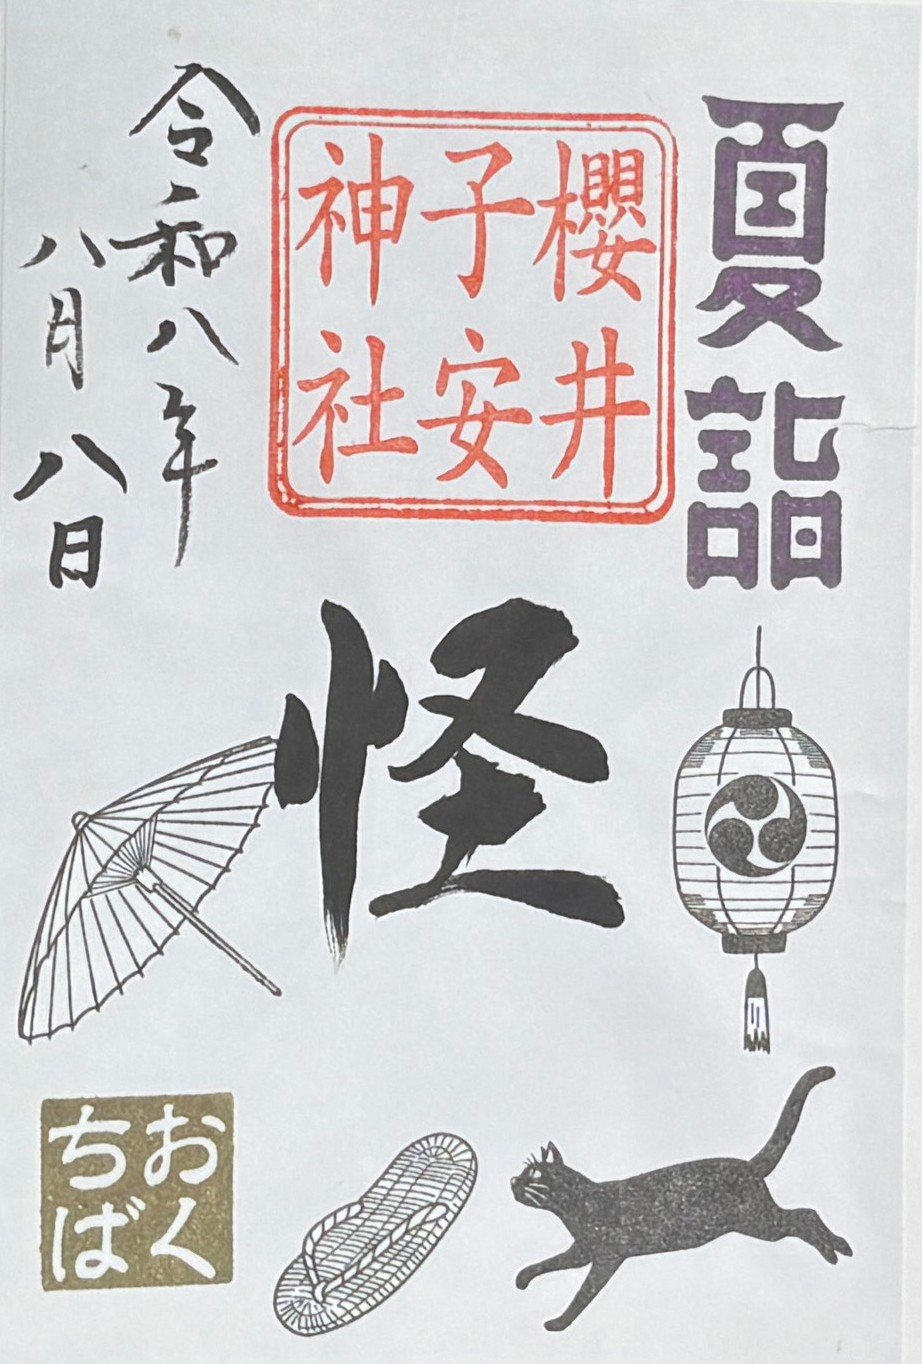 夏詣
櫻井
子安
神社
令和八年
八月八日
怪
おく
ちば